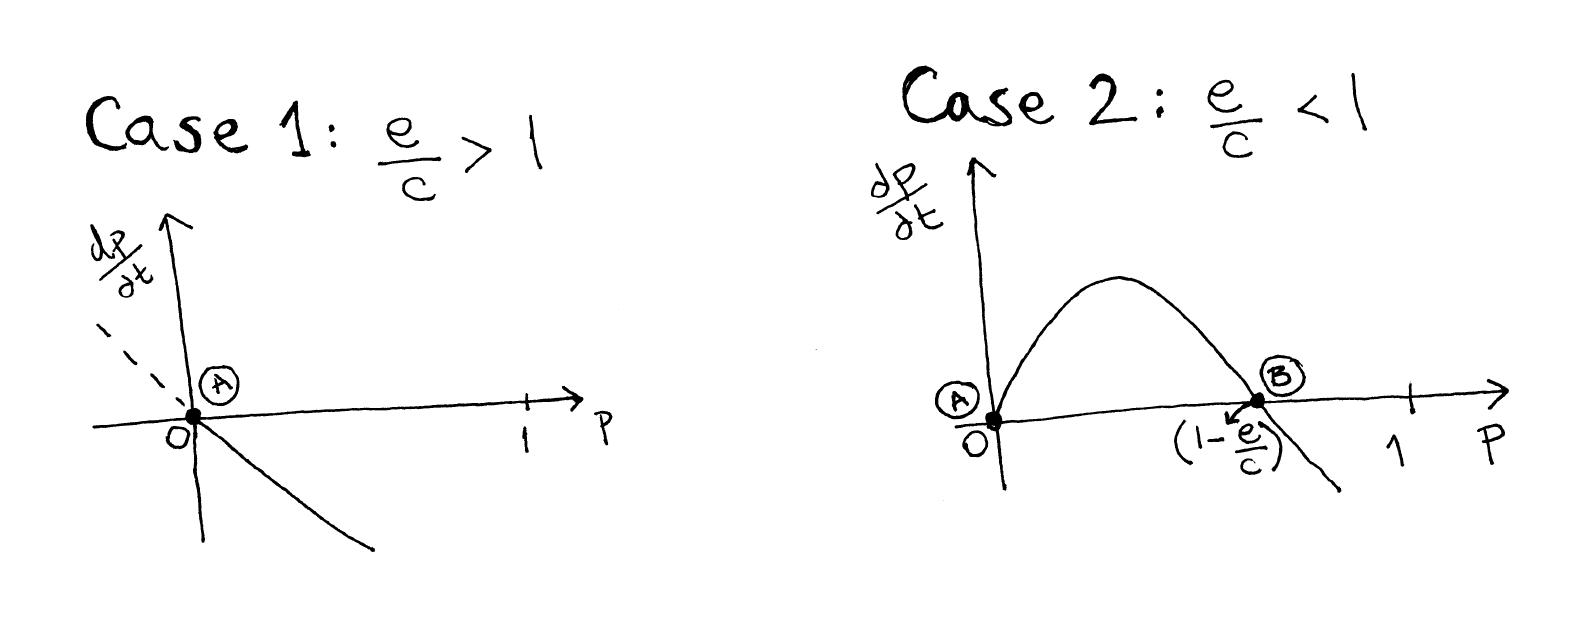 Case 1: e/c > 1
dp/dt
A
0
1
P
Case 2: e/c < 1
dp/dt
A
0
B
(1-e/c)
1
P